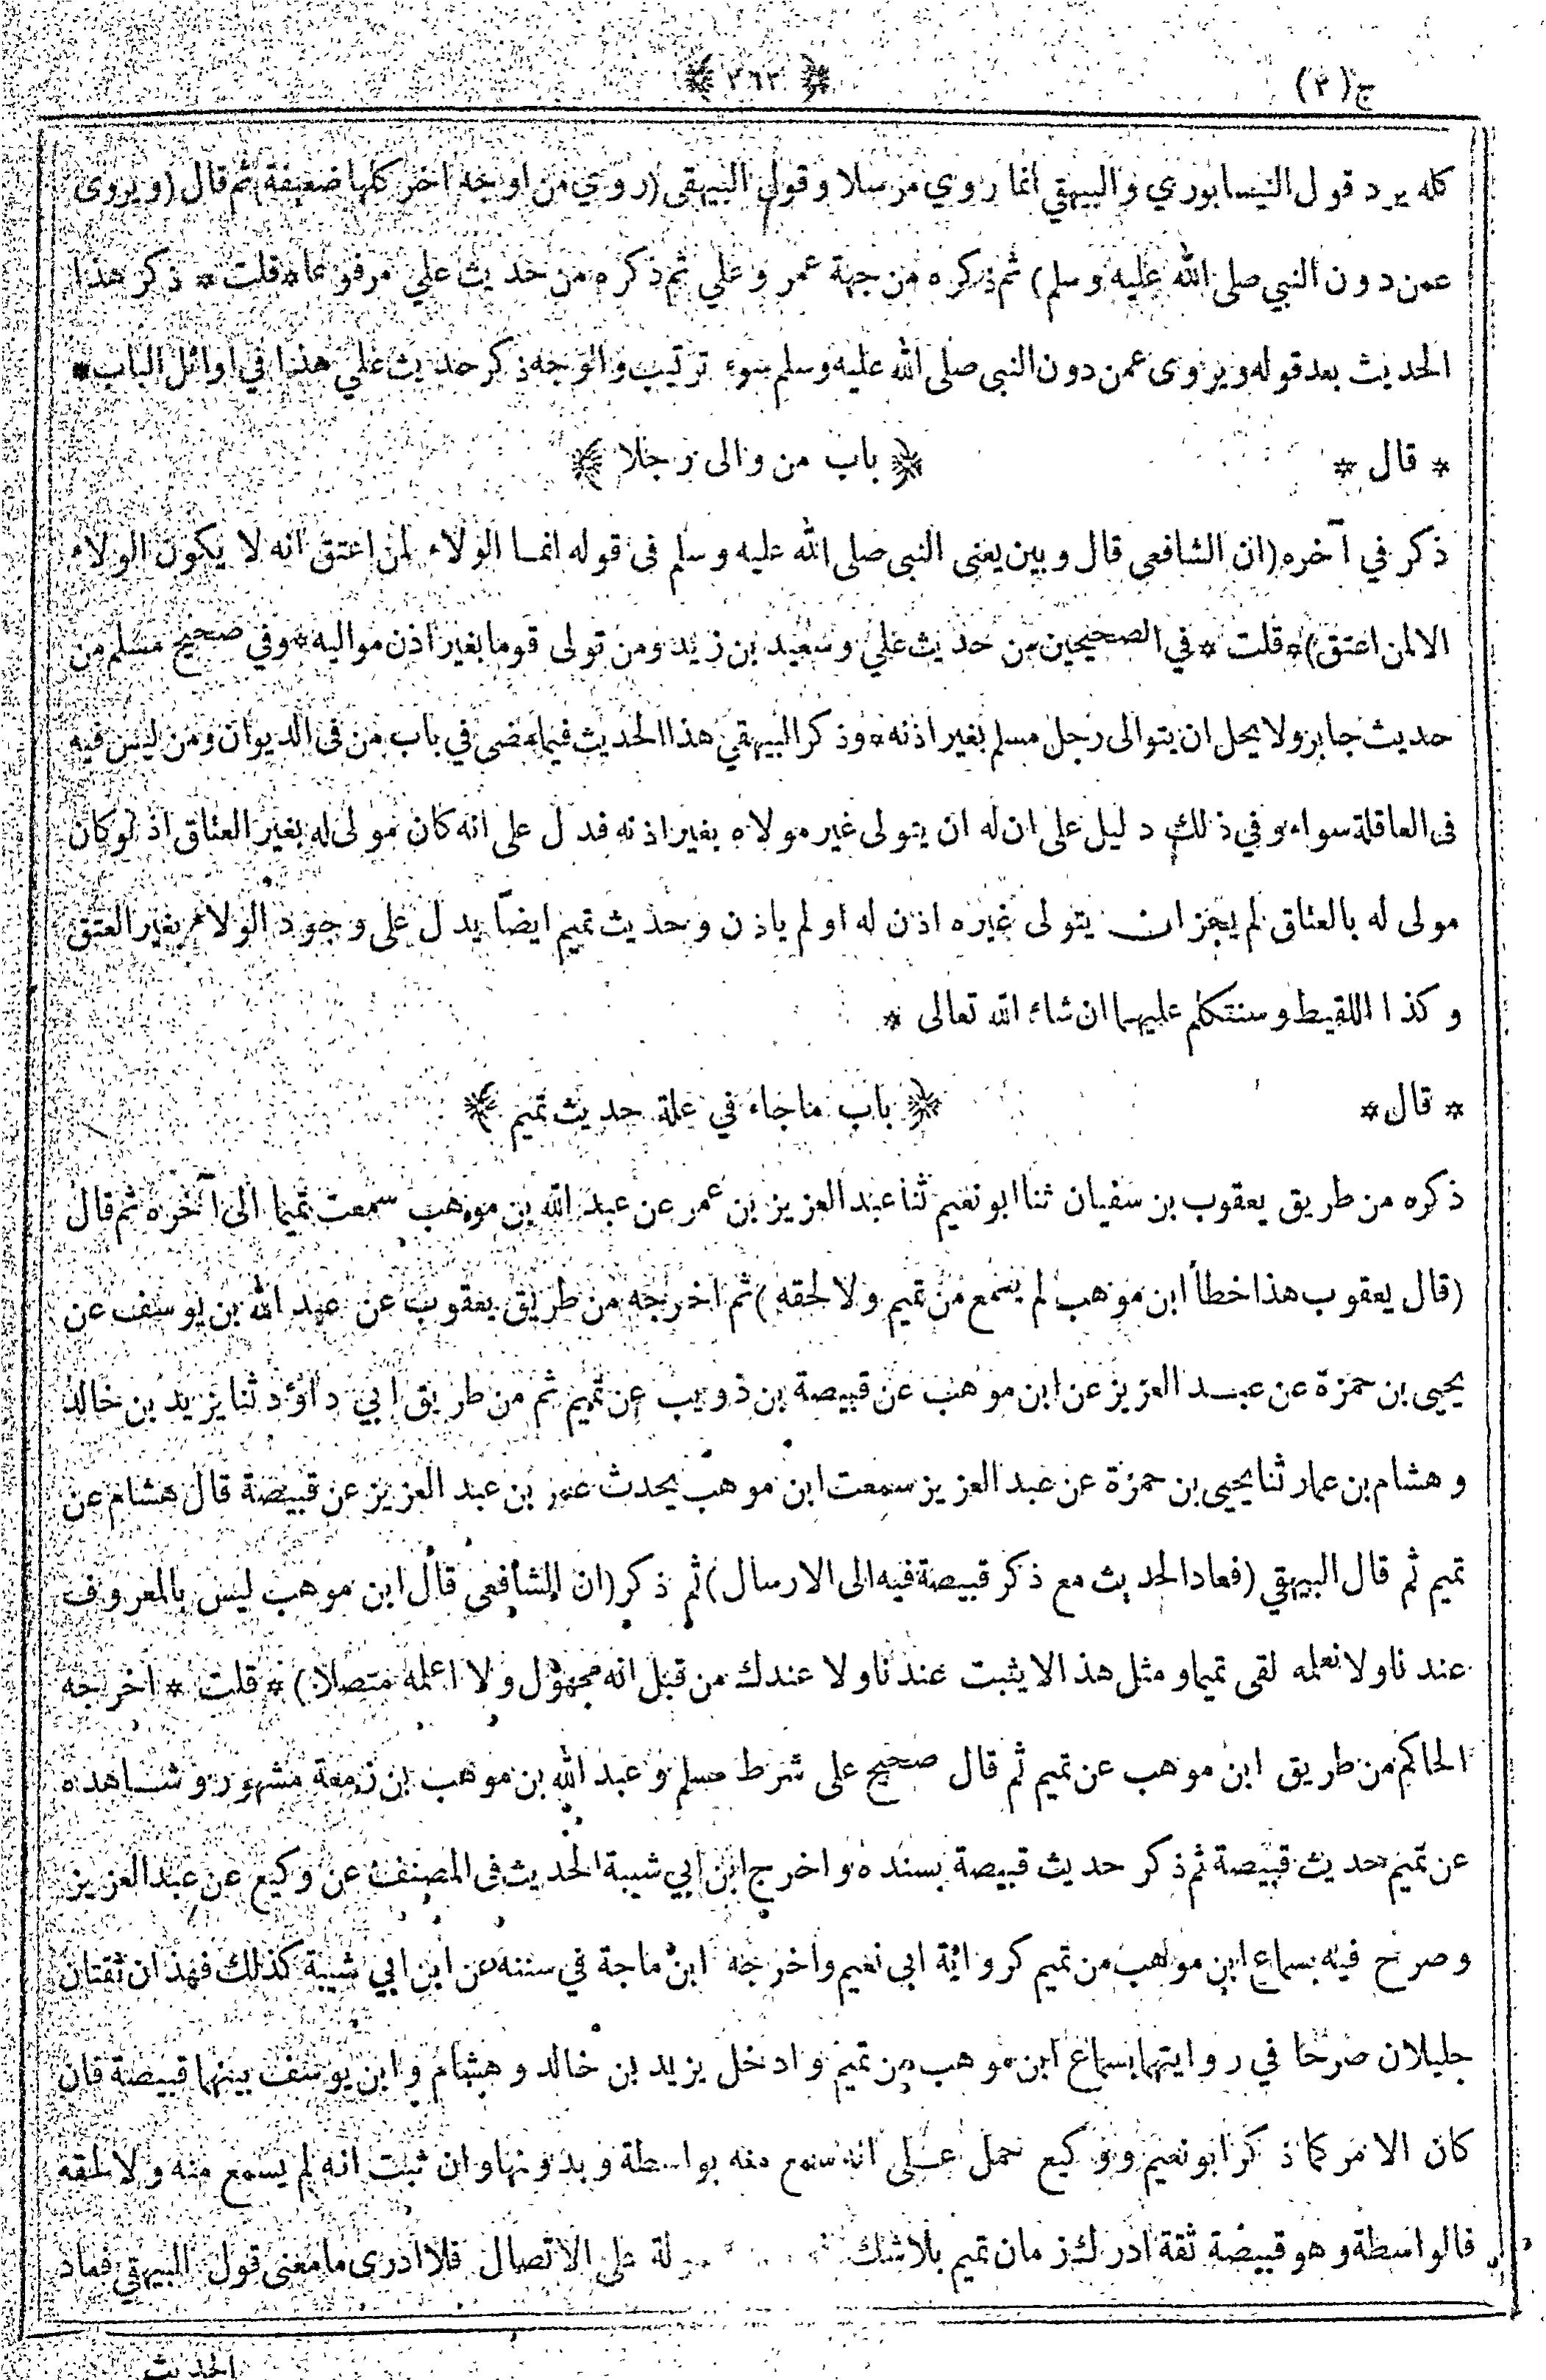 ج (٢) ﴿ ٢٦٢ ﴾
كله يرد قول النيسابوري والبيهقي انما روي مرسلا وقول البيهقى (روي من اوجه اخر كلها ضعيفة) ثم قال (ويروى
عمن دون النبي صلى الله عليه وسلم) ثم ذكره من جهة عمر وعلي ثم ذكره من حديث علي مرفوعا * قلت * ذكر هذا
الحديث بعد قوله ويروى عمن دون النبى صلى الله عليه وسلم سوء ترتيب والوجه ذكر حديث علي هذا في اوائل الباب *
* قال * ﴿ باب من والى رجلا ﴾
ذكر في آخره (ان الشافعى قال وبين يعنى النبى صلى الله عليه وسلم فى قوله انما الولاء لمن اعتق انه لا يكون الولاء
الا لمن اعتق) * قلت * في الصحيحين من حديث علي وسعيد بن زيد ومن تولى قوما بغير اذن مواليه * وفي صحيح مسلم من
حديث جابر ولا يحل ان يتوالى رجل مسلم بغير اذنه * وذكر البيهقي هذا الحديث فيما مضى في باب من فى الديوان ومن ليس فيه
فى العاقلة سواء * وفي ذلك دليل على ان له ان يتولى غير مولاه بغير اذنه فدل على انه كان مولى له بغير العتاق اذ لو كان
مولى له بالعتاق لم يجز ان يتولى غيره اذن له او لم ياذن وحديث تميم ايضا يدل على وجود الولاء بغير العتق
وكذا اللقيط وسنتكلم عليهما ان شاء الله تعالى *
* قال * ﴿ باب ما جاء في علة حديث تميم ﴾
ذكره من طريق يعقوب بن سفيان ثنا ابو نعيم ثنا عبد العزيز بن عمر عن عبد الله بن موهب سمعت تميما الى آخره ثم قال
(قال يعقوب هذا خطأ ابن موهب لم يسمع من تميم ولا لحقه) ثم اخرجه من طريق يعقوب عن عبد الله بن يوسف عن
يحيى بن حمزة عن عبد العزيز عن ابن موهب عن قبيصة بن ذويب عن تميم ثم من طريق ابي داؤد ثنا يزيد بن خالد
وهشام بن عمار ثنا يحيى بن حمزة عن عبد العزيز سمعت ابن موهب يحدث عمر بن عبد العزيز عن قبيصة قال هشام عن
تميم ثم قال البيهقي (فعاد الحديث مع ذكر قبيصة فيه الى الارسال) ثم ذكر (ان الشافعى قال ابن موهب ليس بالمعروف
عندنا ولا نعلمه لقى تميما ومثل هذا لا يثبت عندنا ولا عندك من قبل انه مجهول ولا اعلمه متصلا) * قلت * اخرجه
الحاكم من طريق ابن موهب عن تميم ثم قال صحيح على شرط مسلم وعبد الله بن موهب بن زمعة مشهور وشاهده
عن تميم حديث قبيصة ثم ذكر حديث قبيصة بسنده واخرج ابن ابي شيبة الحديث فى المصنف عن وكيع عن عبد العزيز
وصرح فيه بسماع ابن موهب من تميم كرواية ابى نعيم واخرجه ابن ماجة في سننه عن ابن ابي شيبة كذلك فهذان ثقتان
جليلان صرحا في روايتهما بسماع ابن موهب من تميم وادخل يزيد بن خالد وهشام وابن يوسف بينهما قبيصة فان
كان الامر كما ذكر ابو نعيم ووكيع حمل على انه سمع منه بواسطة وبدونها وان ثبت انه لم يسمع منه ولا لحقه
فالواسطة وهو قبيصة ثقة ادرك زمان تميم بلا شك على الاتصال فلا ادرى ما معنى قول البيهقي فعاد
الحديث